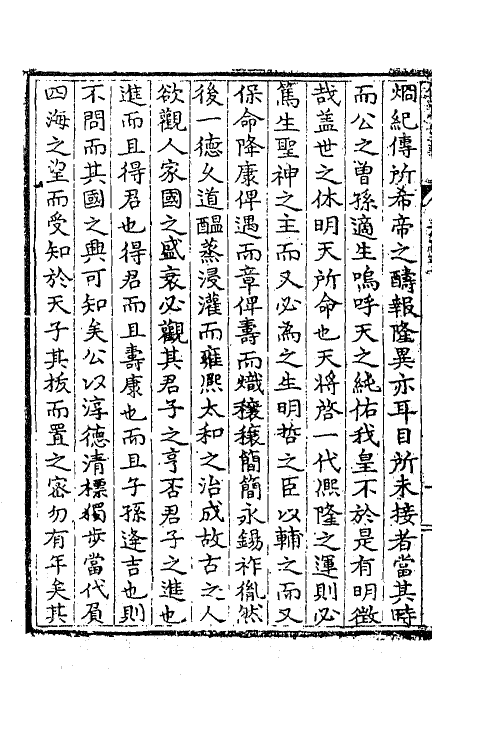 烱紀傳所希帝之醻報隆異亦耳目所未接者當其時
而公之曽孫適生嗚呼天之純佑我皇不於是有明徴
哉盖世之休明天所命也天將啓一代凞隆之運則必
篤生聖神之主而又必為之生明哲之臣以輔之而又
保命降康俾遇而章俾壽而熾穰穰簡簡永錫祚胤然
後一德乆道醖蒸浸灌而雍凞太和之治成故古之人
欲觀人家國之盛衰必觀其君子之亨否君子之進也
進而且得君也得君而且壽康也而且子孫逢吉也則
不問而其國之興可知矣公以淳德清標獨歩當代負
四海之望而受知於天子其拔而置之宻勿有年矣其